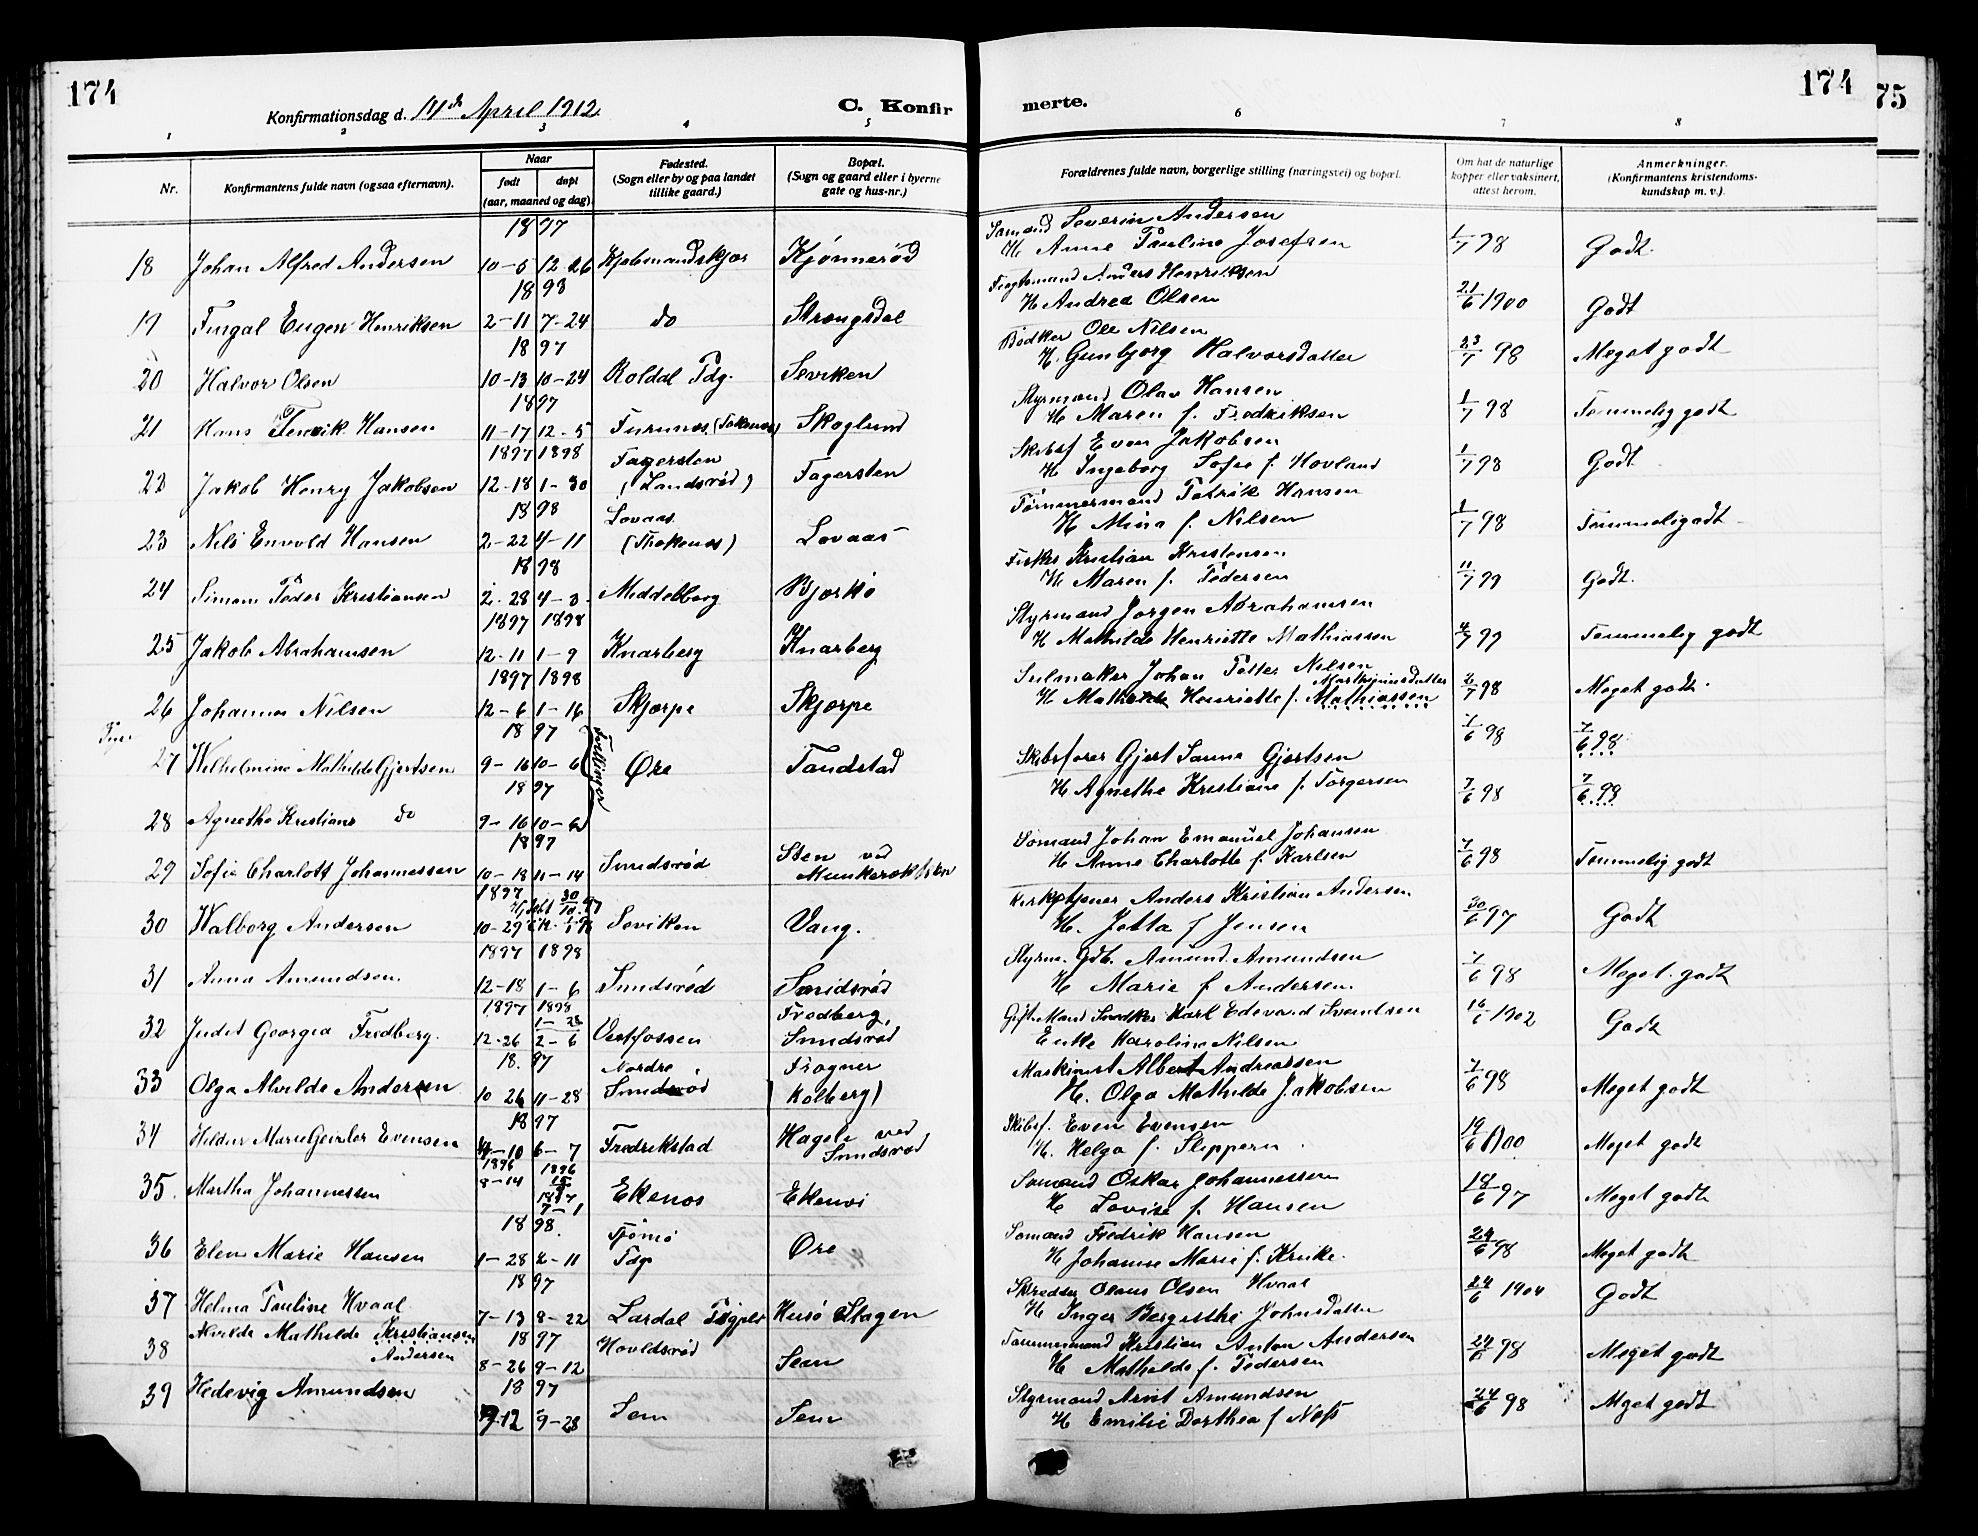 174
Konfirmationsdag d. 14de April 1912
C. Konfirmerte.
174
75
1 2 3 4 5 6 7 8
Nr.
Konfirmantens fulde navn (ogsaa efternavn).
Naar
født døpt
(aar, maaned og dag)
Fødested.
(Sogn eller by og paa landet tillike gaard.)
Bopæl.
(Sogn og gaard eller i byerne gate og hus-nr.)
Forældrenes fulde navn, borgerlige stilling (næringsvei) og bopæl.
Om hat de naturlige kopper eller vaksinert, attest herom.
Anmerkninger.
(Konfirmantens kristendomskundskap m. v.).
1897
Sømand Severin Andersen
18 Johan Alfred Andersen 10-5 12-26 Kjøbmandskjær Kjønnerød H. Anne Pauline Josefsen 1/7 98 Godt.
1898
Fragtemand Anders Henriksen
19 Fingal Eugen Henriksen 2-11 7-24 do Strengsdal H Andrea Olsen 21/6 1900 Godt
1897
Bødker Ole Nilsen
20 Halvor Olsen 10-13 10-24 Roldal Tdg. Seviken H. Gunbjorg Halvorsdatter 23/7 98 Meget godt
1897
Styrmand Olav Hansen
21 Hans Fenrik Hansen 11-17 12-5 Furunes (Tokenes) Skoglund H Maren f. Fredriksen 1/7 98 Temmelig godt
1897 1898
Skibsf Even Jakobsen
22 Jakob Henry Jakobsen 12-18 1-30 Fagersten (Sandsrød) Fagersten H Ingeborg Sofie f. Hovland 1/7 98 Godt
1898
Tømmermand Patrik Hansen
23 Nils Envold Hansen 2-22 4-11 Lovaas (Thokenes) Lovaas H Mina f. Nilsen 1/7 98 Temmeligodt
1898
Fisker Kristian Kristensen
24 Simon Peder Kristiansen 2-28 4-3 Middelborg Bjerkø H Maren f. Pedersen 11/7 99 Godt.
1897 1898
Styrmand Jørgen Abrahamsen
25 Jakob Abrahamsen 12-11 1-9 Knarberg Knarberg H Mathilde Henriette Mathiassen 4/7 99 Temmelig godt
1897 1898
Seilmaker Johan Petter Nilsen
26 Johannes Nilsen 12-6 1-16 Skjærpe Skjærpe H Mathilde Henriette f. Mathiassen Marthinusdatter 2/7 98 Meget godt.
1897
27 Wilhelmine Mathilde Gjertsen 9-16 10-6 Tvillinger Øre Tandstad Skibsfører Gjert Sanne Gjertsen 1/6 98 7/6 98
1897
28 Agnethe Kristiane do 9-16 10-6 H Agnethe Kristiane f. Torgersen 7/6 98 7/6 98
1897
Sømand Johan Emanuel Johansen
29 Sofie Charlott Johannessen 10-18 11-14 Smidsrød Sten ved Munkerekkken H. Anne Charlotte f. Karlsen 7/6 98 Temmelig godt
1897
Kirketjener Anders Kristian Andersen
30 Walborg Andersen 10-29 Seviken Vang. H. Jetta f Jensen 30/6 97 Godt
1897 1898
Styrm. Gdb. Amund Amundsen
31 Anna Amundsen. 12-18 1-6 Smidsrød Smidsrød H Marie f. Andersen. 7/6 98 Meget godt
1897 1898
Gift Mand Snedker Karl Edevard Svendsen
32 Judit Georgea Fredberg. 12-26 1-28 2-6 Vestfossen Fredberg, Smidsrød Enke Karoline Nilsen 16/6 1902 Godt
1897
Maskinist Albert Andreassen
33 Olga Alvilde Andersen 10-26 11-28 Nordre Smidsrød Frogner (Kolberg) H. Olga Mathilde Jakobsen 7/6 98 Meget godt
1897
Skibsf. Even Evensen
34 Hildur Marie Evensen 4-10 6-7 Fredrikstad Hagele ved Smidsrød H. Helga f. Slippern 19/6 1900 Meget godt
1896 1896
Sømand Oskar Johannessen
35. Martha Johannessen 8-14 1897 7-1 Ekenes Ekenes H Lovise f. Hansen 18/6 97 Meget godt
1898.
Sømand Fredrik Hansen
36 Elen Marie Hansen 1-28 2-11 Tjømø Tdg Øre H Johanne Marie f. Krüke. 24/6 98 Meget godt
1897
Skredder Olaus Olsen Hvaal
37 Helma Pauline Hvaal 7-13 8-22 Lardal Husø Stagen H Inger Bergitthe Johnsdatter 24/6 1904 Godt
1897
Tømmermand Kristian Anton Andersen
38 Alvilde Mathilde Kristiansen Andersen 8-26 9-12 Hovldsrød Sem H Mathilde f. Pedersen 24/6 98 Meget godt
1897
Styrmand Arnt Amundsen
39 Hedevig Amundsen 7-12 9-28 Sem Sem H Emilie Dorthea f Næss 24/6 98 Meget godt